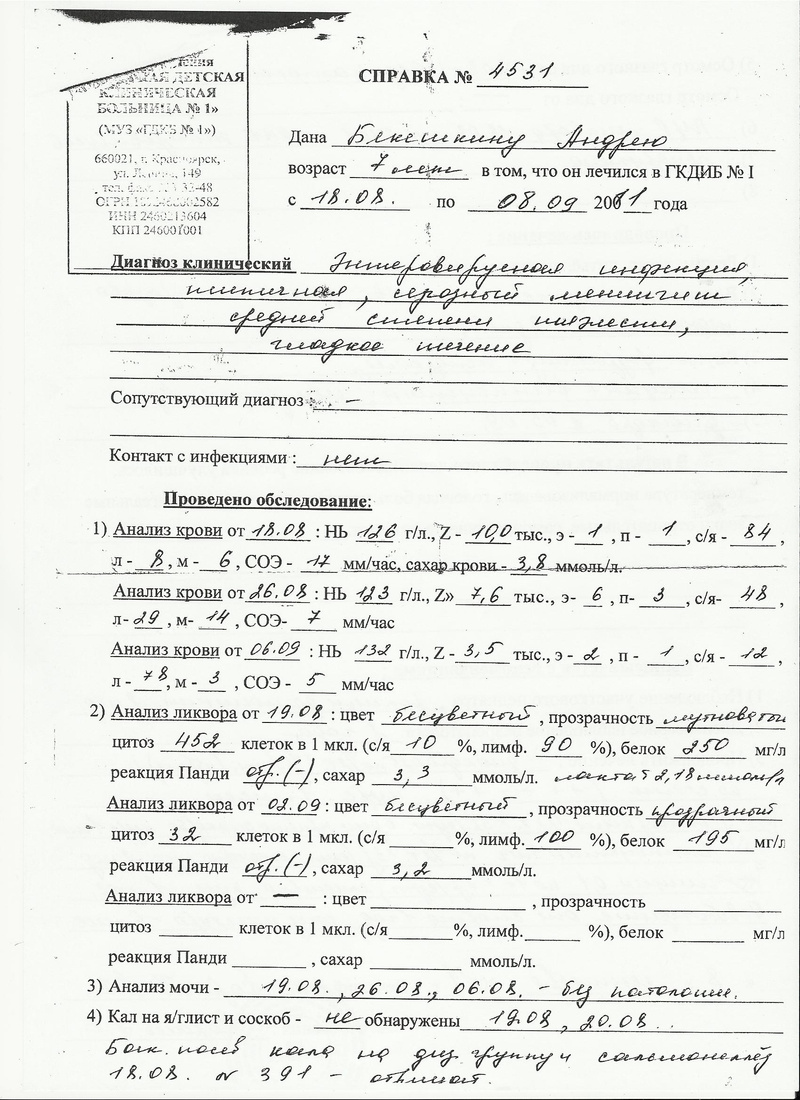 ДЕТСКАЯ
КЛИНИЧЕСКАЯ
БОЛЬНИЦА № 1»
(МУЗ «ГДКБ № 1»)
660021, г. Красноярск,
ул. Ленина, 149
ИНН 2460213604
КПП 246001001
СПРАВКА № 4531
Дана Бекешкину Андрею
возраст 7 лет в том, что он лечился в ГКДИБ № I
с 18.08. по 08.09 2011 года
Диагноз клинический Энтеровирусная инфекция,
типичная, серозный менингит
средней степени тяжести,
гладкое течение
Сопутствующий диагноз: –
Контакт с инфекциями : нет
Проведено обследование:
1) Анализ крови от 18.08 : НЬ 126 г/л., Z - 10,0 тыс., э - 1 , п - 1 , с/я - 84 ,
л - 8 , м - 6 , СОЭ - 17 мм/час, сахар крови - 3,8 ммоль/л.
Анализ крови от 26.08 : НЬ 123 г/л., Z» 7,6 тыс., э- 6 , п- 3 , с/я- 48 ,
л- 29 , м- 14 , СОЭ- 7 мм/час
Анализ крови от 06.09 : НЬ 132 г/л., Z - 3,5 тыс., э - 2 , п - 1 , с/я - 12 ,
л - 78 , м - 3 , СОЭ - 5 мм/час
2) Анализ ликвора от 19.08 : цвет бесцветный , прозрачность мутноватый
цитоз 452 клеток в 1 мкл. (с/я 10 %, лимф. 90 %), белок 250 мг/л
реакция Панди отр. (-) , сахар 3,3 ммоль/л. лактат 2,18 ммоль/л
Анализ ликвора от 02.09 : цвет бесцветный , прозрачность прозрачный
цитоз 32 клеток в 1 мкл. (с/я %, лимф. 100 %), белок 195 мг/л
реакция Панди отр. (-) , сахар 3,2 ммоль/л.
Анализ ликвора от — : цвет , прозрачность
цитоз клеток в 1 мкл. (с/я %, лимф. %), белок мг/л
реакция Панди , сахар ммоль/л.
3) Анализ мочи - 19.08., 26.08., 06.08. - без патологии.
4) Кал на я/глист и соскоб - не обнаружены 19.08, 20.08.
Бак. посев кала на диз. группу и сальмонеллёз
18.08. № 391 – отрицат.